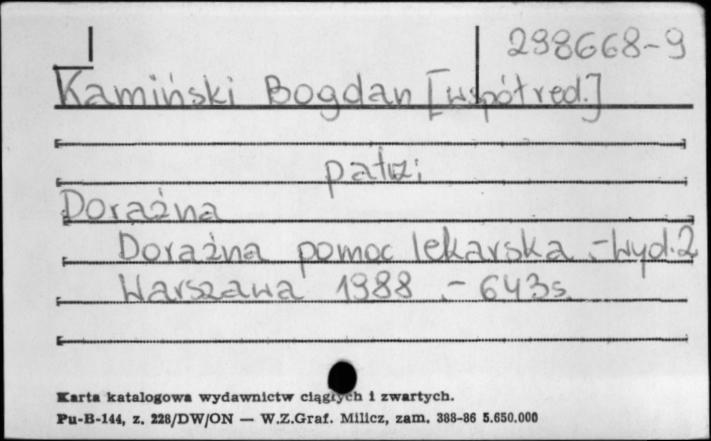 298668-9
Kamiński Bogdan [współred.]
patrz:
Doraźna
Doraźna pomoc lekarska.-Wyd.2
Warszawa 1988.- 643s.
Karta katalogowa wydawnictw ciągłych i zwartych.
Pu-B-144, z. 228/DW/ON — W.Z.Graf. Milicz, zam. 388-86 5.650.000